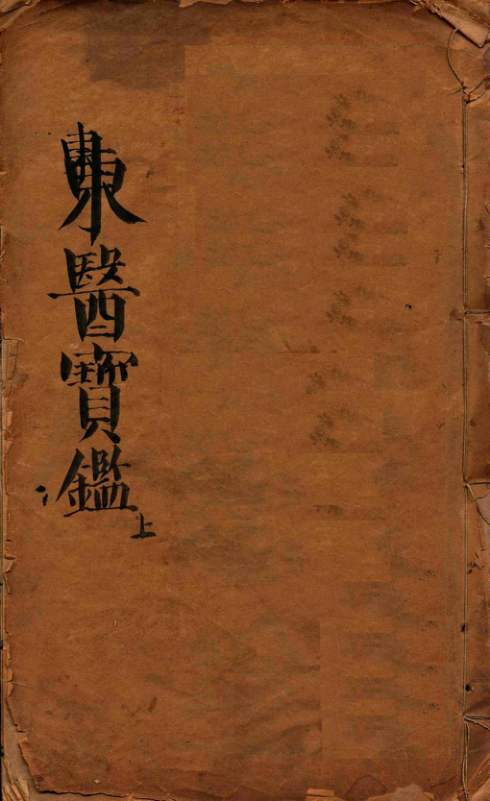 東醫寶鑑
上